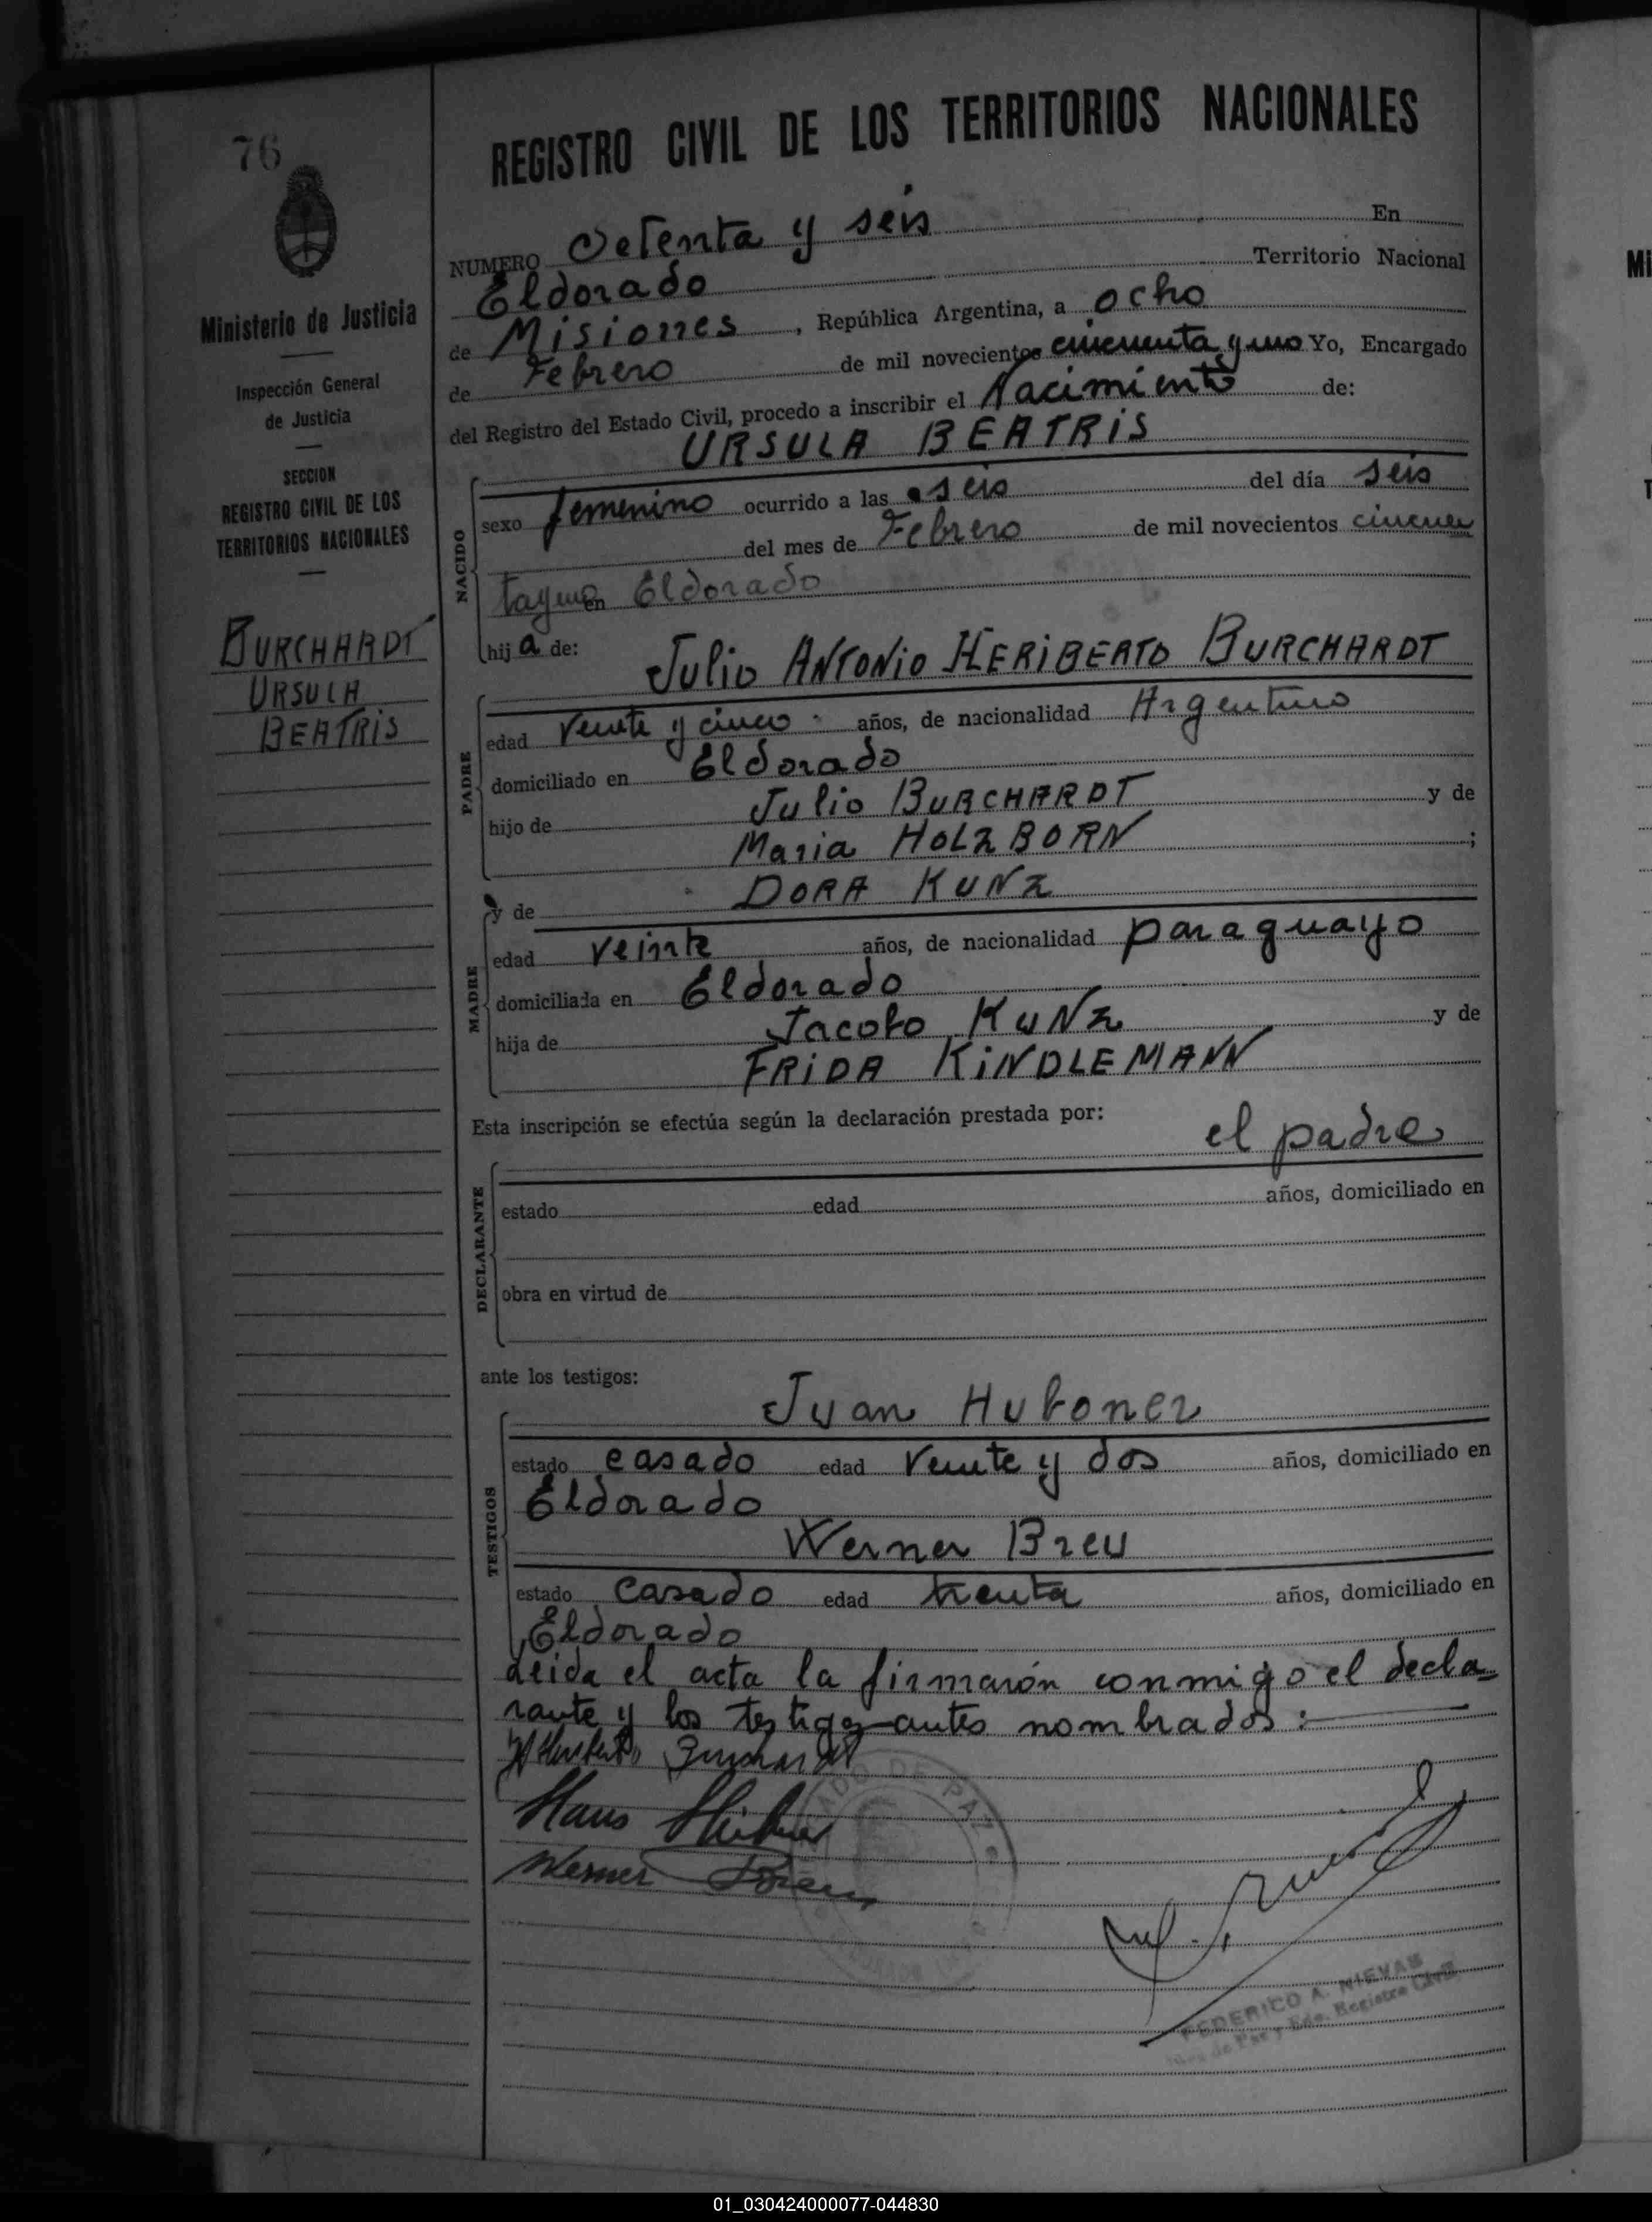 76
REGISTRO CIVIL DE LOS TERRITORIOS NACIONALES
Ministerio de Justicia
Inspección General
de Justicia
SECCION
REGISTRO CIVIL DE LOS
TERRITORIOS NACIONALES
BURCHARDT
URSULA
BEATRIS
NUMERO Setenta y seis En
Eldorado Territorio Nacional
de Misiones, República Argentina, a ocho
de Febrero de mil novecientos cincuenta y uno Yo, Encargado
del Registro del Estado Civil, procedo a inscribir el Nacimiento de:
URSULA BEATRIS
NACIDO
sexo femenino ocurrido a las seis del día seis
del mes de Febrero de mil novecientos cincuen
tayuno en Eldorado
hija de:
Julio ANTONIO HERIBERTO BURCHARDT
PADRE
edad veinte y cinco años, de nacionalidad Argentino
domiciliado en Eldorado
hijo de Julio BURCHARDT y de
Maria HOLZBORN ;
y de DORA KUNZ
MADRE
edad veinte años, de nacionalidad paraguayo
domiciliada en Eldorado
hija de Jacobo KUNZ y de
FRIDA KINDLEMANN
Esta inscripción se efectúa según la declaración prestada por:
el padre
DECLARANTE
estado edad años, domiciliado en
obra en virtud de
ante los testigos:
Juan Huboner
TESTIGOS
estado casado edad veinte y dos años, domiciliado en
Eldorado
Werner Breu
estado casado edad treinta años, domiciliado en
Eldorado
Leida el acta la firmarón conmigo el decla-
rante y los testigos antes nombrados:
Hans
Werner Breu
FEDERICO A. NIEVAS
de Paz y Edo. Registro Civil
01_030424000077-044830